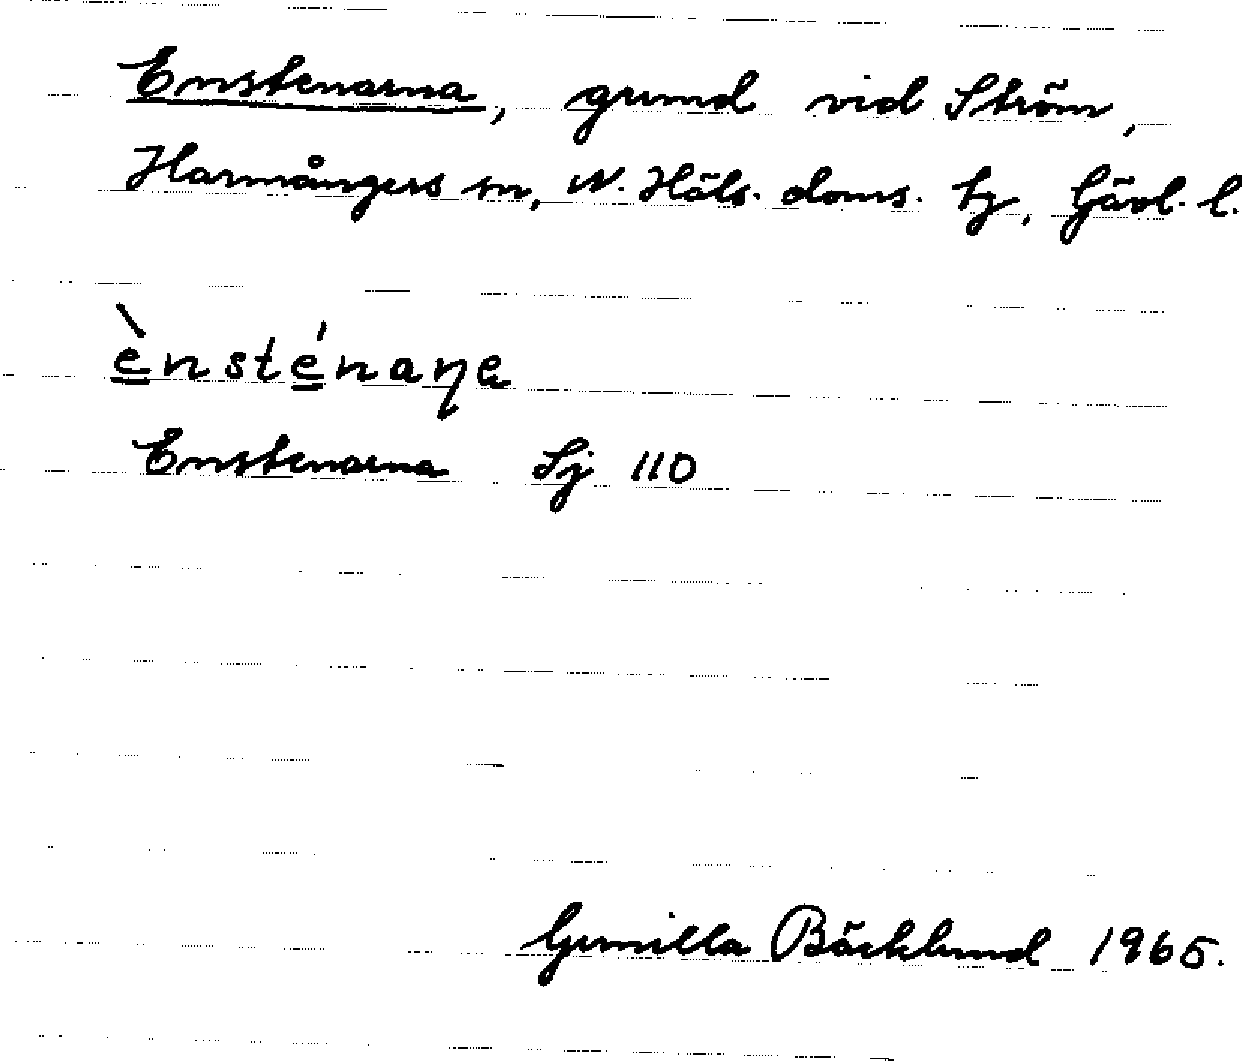 Enstenarna, grund vid Ström,
Harmångers sn, N. Häls. doms. tg, Gävl. l.
è̳nsté̳naƞa
Enstenarna Sj 110
Gunilla Bäcklund 1965.